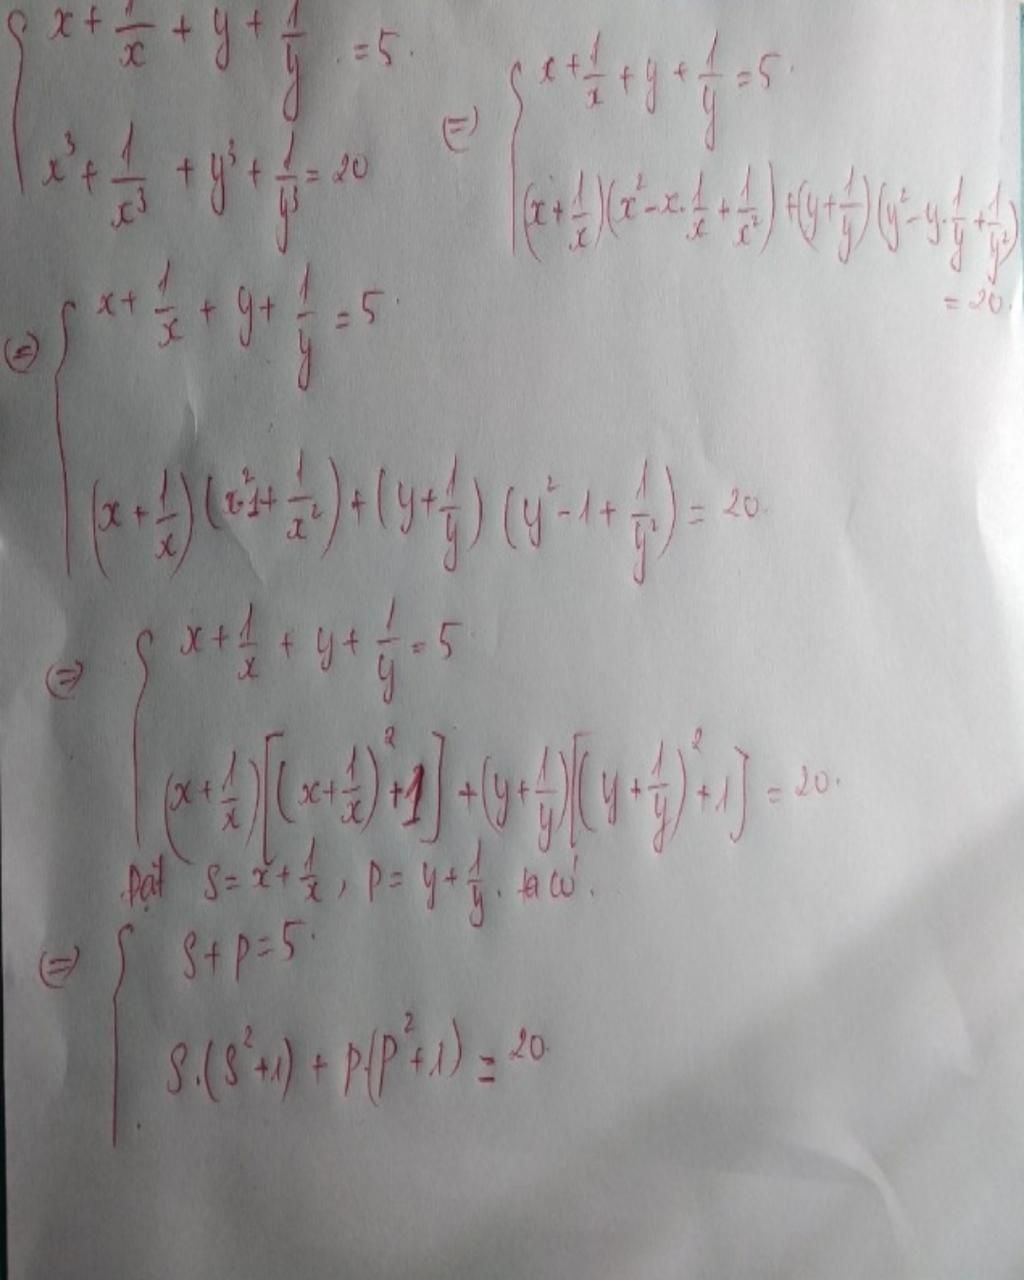 x + 1/x + y + 1/y = 5.
x³ + 1/x³ + y³ + 1/y³ = 20
(=) x + 1/x + y + 1/y = 5.
(x + 1/x)(x² - x.1/x + 1/x²) + (y + 1/y)(y² - y.1/y + 1/y²)
= 20.
(=) x + 1/x + y + 1/y = 5.
(x + 1/x)(x² - 1 + 1/x²) + (y + 1/y)(y² - 1 + 1/y²) = 20.
(=) x + 1/x + y + 1/y = 5
(x + 1/x)[(x + 1/x)² + 1] + (y + 1/y)[(y + 1/y)² + 1] = 20.
Đặt S = x + 1/x, P = y + 1/y. ta có.
(=) S + P = 5.
S.(S² + 1) + P.(P² + 1) = 20.